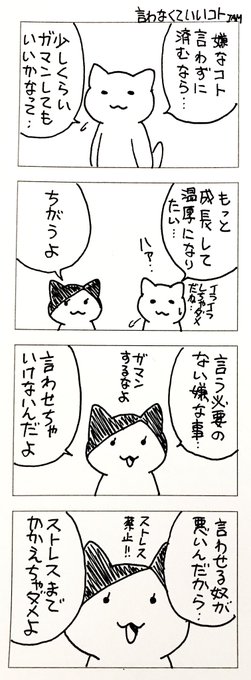 言わなくていいコト
嫌なコト
言わずに
済むなら…
少しくらい
ガマンしても
いいかなって…
もっと
成長して
温厚になり
たい…
イライラ
しちゃダメ
だな…
ハァ…
ちがうよ
言う必要の
ない嫌な事…
ガマン
するなよ
言わせちゃ
いけないんだよ
言わせる奴が
悪いんだから…
ストレス
禁止!!
ストレスまで
かかえちゃダメよ